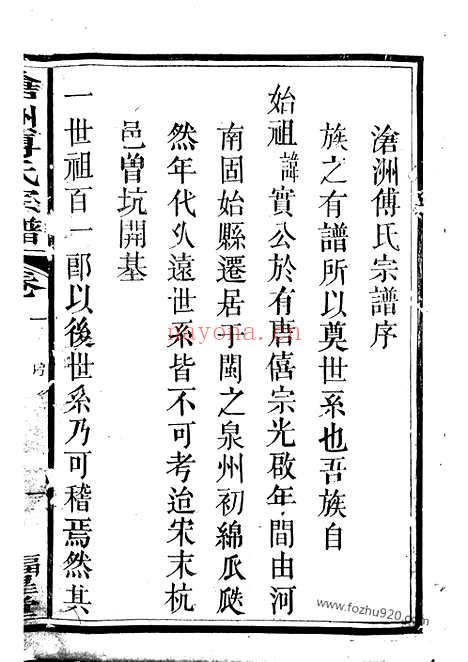 滄洲傅氏宗譜序
族之有譜所以奠世系也吾族自
始祖諱實公於有唐僖宗光啟年間由河
南固始縣遷居于閩之泉州初綿瓜瓞
然年代久遠世系皆不可考迨宋末杭
邑曾坑開基
一世祖百一郎以後世系乃可稽焉然其
滄洲傅氏宗譜 卷一 序 一
nayona.cn
www.fozhu920.com